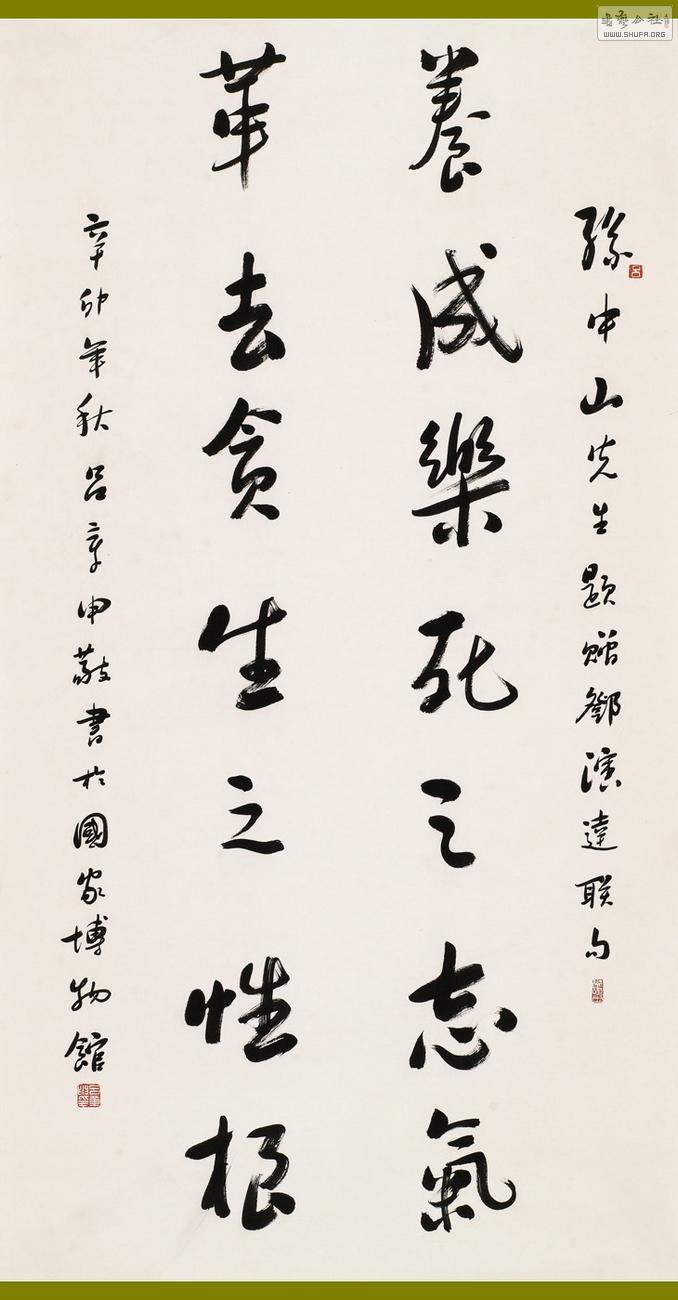 孫中山先生題贈鄧演達联句
養成樂死之志氣
革去貪生之性根
辛卯年秋呂章申敬書於國家博物館
書藝公社
WWW.SHUFA.ORG